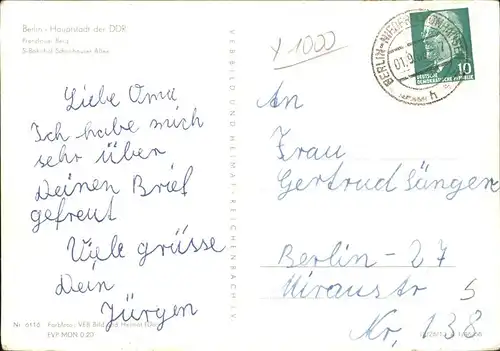 Berlin - Hauptstadt der DDR
Prenzlauer Berg
S-Bahnhof Schönhauser Allee
Liebe Oma
Ich habe mich
sehr über
Deinen Brief
gefreut
Viele grüsse
Dein
Jürgen
VERLAG BILD UND HEIMAT REICHENBACH I. V.
Y 1000
BERLIN-NIEDERSCHÖNHAUSEN
01.9
h
10
DEUTSCHE
DEMOKRATISCHE REPUBLIK
An
Frau
Gertrud Sänger
Berlin - 27
Miraustr
Nr, 138
5
Nr 6116 Farbfoto: VEB Bild und Heimat
EVP MDN 0.20